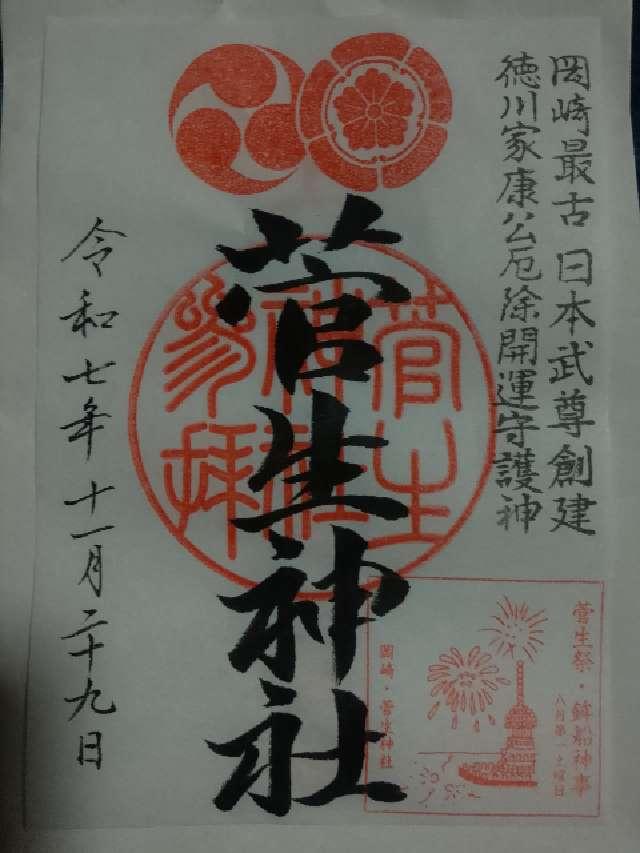 岡崎最古 日本武尊創建
徳川家康公厄除開運守護神
菅生神社
菅生神社参拝
令和七年十一月二十九日
菅生祭・鉾船神事
八月第一土曜日
岡崎・菅生神社